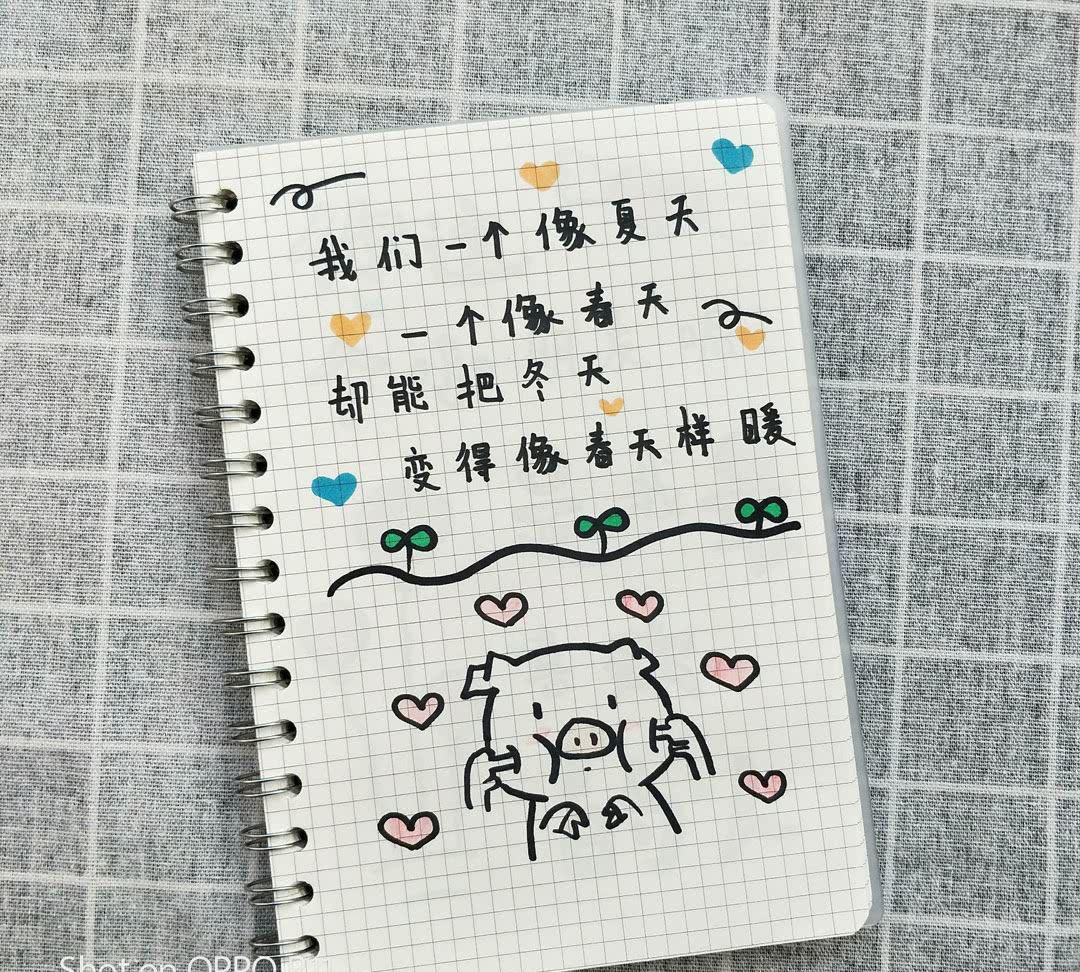 我们一个像夏天
一个像春天
却能把冬天
变得像春天样暖
Shot on OPPO